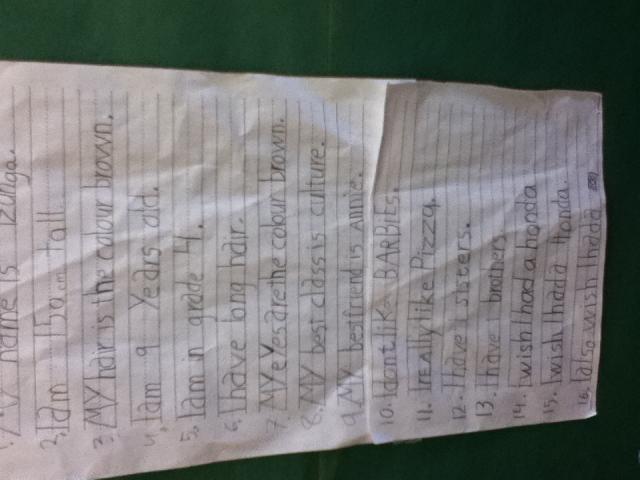 1. My name is Izunga.
2. I am 150 cm tall.
3. MY hair is the colour brown.
4. I am 9 years old.
5. I am in grade 4.
6. I have long hair.
7. MY eYes are the colour brown.
8. MY best class is culture.
9. MY bestfriend is Annie.
10. I dont like BARBIES.
11. I rEAlly like Pizzy.
12. I have sisters.
13. I have 1 brothers.
14. I wish I had a honda
15. I wish I hadd Honda.
16. I also wish I hadd